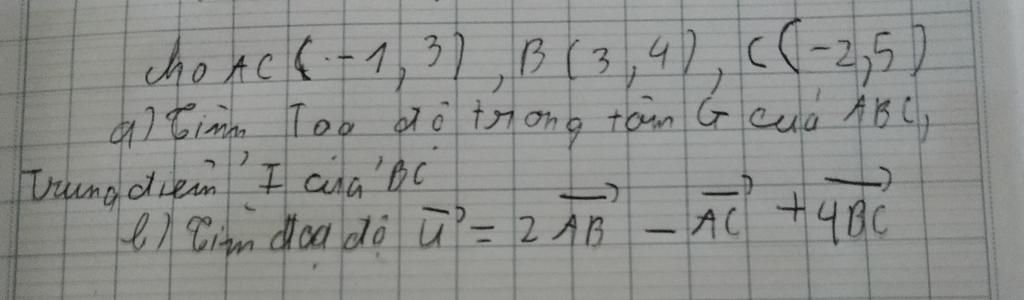 cho AC(-1,3), B(3,4), C(-2,5)
a) Tìm Toạ độ trong tâm G cuả ABC,
Trung điểm I của BC
b) Tìm đoạ độ u⃗ = 2 AB⃗ - AC⃗ + 4BC⃗